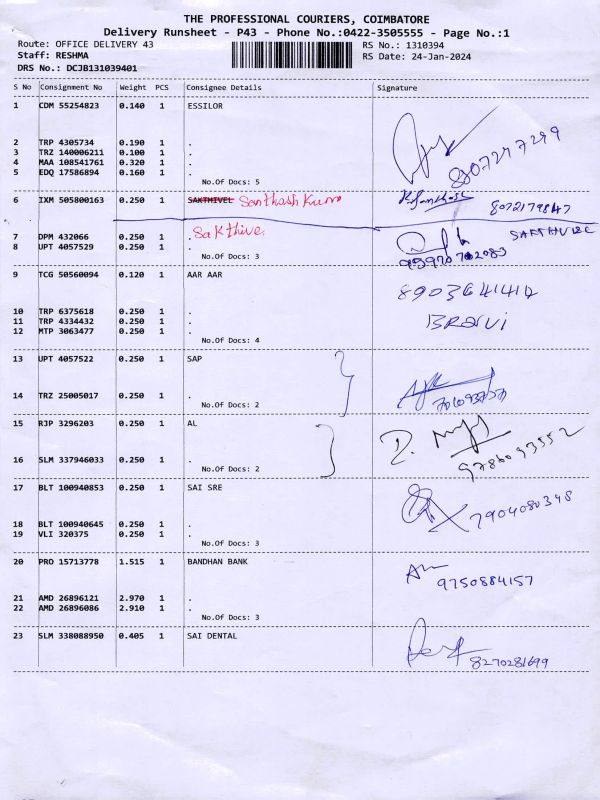 THE PROFESSIONAL COURIERS, COIMBATORE
Delivery Runsheet - P43 - Phone No.:0422-3505555 - Page No.:1
Route: OFFICE DELIVERY 43 RS No.: 1310394
Staff: RESHMA RS Date: 24-Jan-2024
DRS No.: DCJB131039401
S No Consignment No Weight PCS Consignee Details Signature
1 CDM 55254823 0.140 1 ESSILOR
2 TRP 4305734 0.190 1 .
3 TRZ 140006211 0.100 1 .
4 MAA 108541761 0.320 1 .
5 EDQ 17586894 0.160 1 .
8072477299
No.Of Docs: 5
6 IXM 505800163 0.250 1 SAKTHIVEL Santhosh Kum 8072179847
Sakthive. SAKTHIVEL
7 DPM 432066 0.250 1 .
8 UPT 4057529 0.250 1 .
No.Of Docs: 3
9 TCG 50560094 0.120 1 AAR AAR
8903641414
10 TRP 6375618 0.250 1 .
11 TRP 4334432 0.250 1 .
12 MTP 3063477 0.250 1 .
No.Of Docs: 4
13 UPT 4057522 0.250 1 SAP
14 TRZ 25005017 0.250 1 .
No.Of Docs: 2
15 RJP 3296203 0.250 1 AL
16 SLM 337946033 0.250 1 .
9786093552
No.Of Docs: 2
17 BLT 100940853 0.250 1 SAI SRE
7904080348
18 BLT 100940645 0.250 1 .
19 VLI 320375 0.250 1 .
No.Of Docs: 3
20 PRO 15713778 1.515 1 BANDHAN BANK
9750884157
21 AMD 26896121 2.970 1 .
22 AMD 26896086 2.910 1 .
No.Of Docs: 3
23 SLM 338088950 0.405 1 SAI DENTAL
8270281699